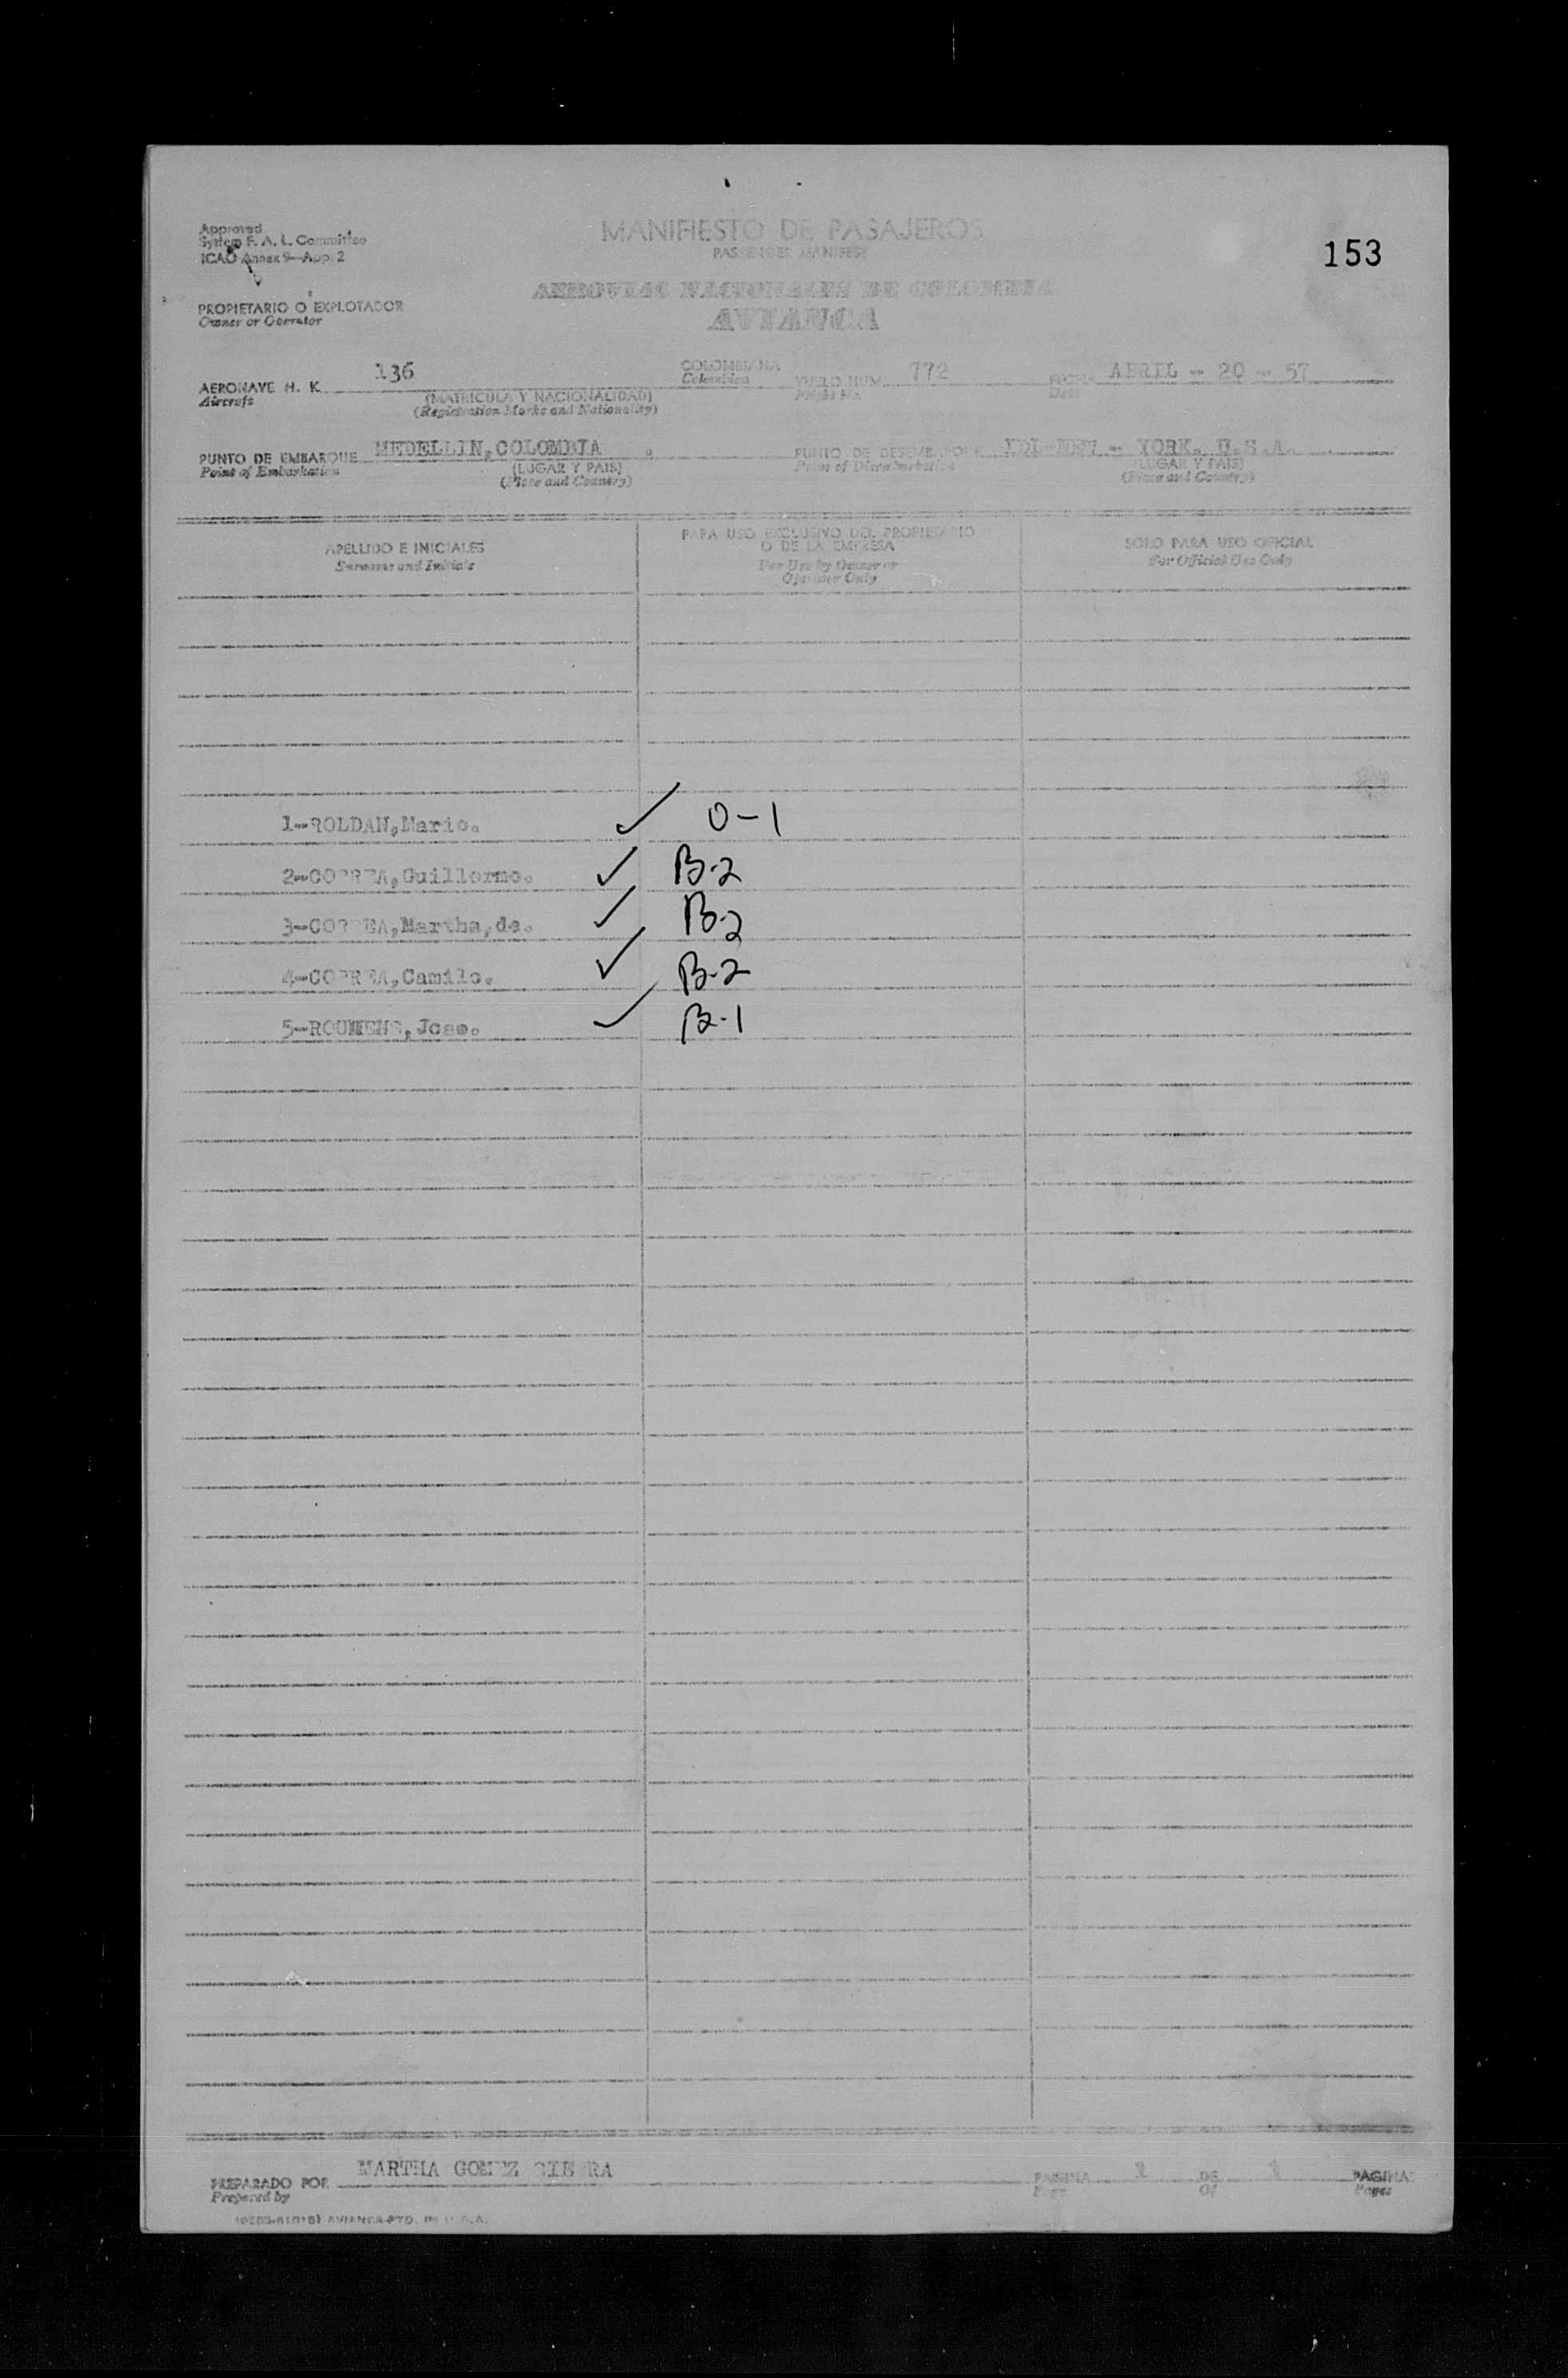 Approved
System F. A. L. Committee
ICAO Annex 9-App. 2
MANIFIESTO DE PASAJEROS
PASSENGER MANIFEST
153
AEROVIAS NACIONALES DE COLOMBIA
AVIANCA
PROPIETARIO O EXPLOTADOR
Owner or Operator
AERONAVE H. K. 136 COLOMBIANA VUELO NUM. 772 FECHA ABRIL - 20 - 57
Aircraft Colombian Flight No. Date
(MATRICULA Y NACIONALIDAD)
(Registration Marks and Nationality)
PUNTO DE EMBARQUE MEDELLIN, COLOMBIA PUNTO DE DESEMBARQUE IDL-NEW - YORK. U.S.A.
Point of Embarkation (LUGAR Y PAIS) Point of Disembarkation (LUGAR Y PAIS)
(Place and Country) (Place and Country)
APELLIDO E INICIALES PARA USO EXCLUSIVO DEL PROPIETARIO O DE LA EMPRESA SOLO PARA USO OFICIAL
Surname and Initials For Use by Owner or Operator Only For Official Use Only
1--ROLDAN, Mario. ✓ O-1
2--CORREA, Guillermo. ✓ B-2
3--CORREA, Martha, de. ✓ B-2
4--CORREA, Camilo. ✓ B-2
5--ROUMENS, Jose. ✓ B-1
PREPARADO POR MARTHA GOMEZ SIERRA PAGINA 1 DE 1 PAGINAS
Prepared by Page Of Pages
AVIANCA-PTD. IN U.S.A.